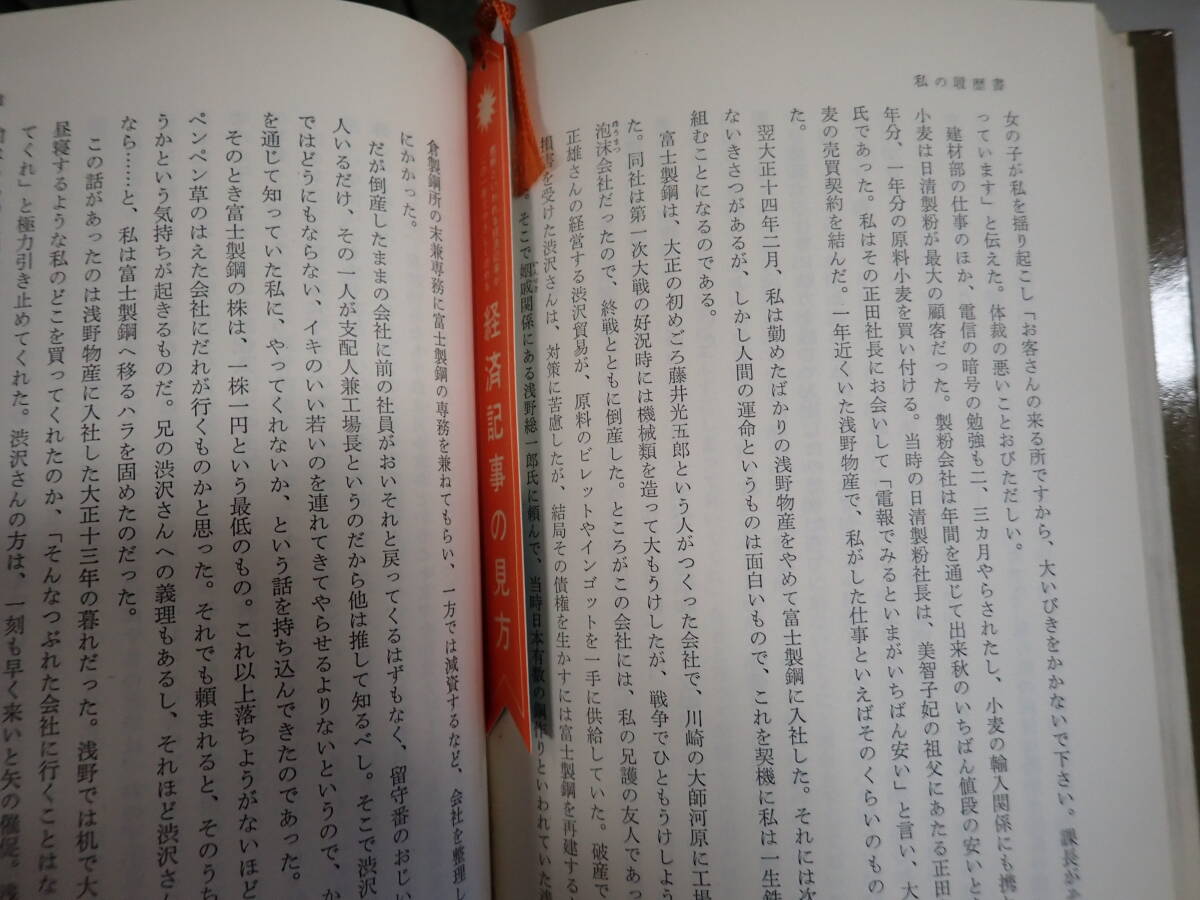 私の履歴書
女の子が私を揺り起こし「お客さんの来る所ですから、大いびきをかかないで下さい。課長が
っています」と伝えた。体裁の悪いことおびただしい。
建材部の仕事のほか、電信の暗号の勉強も二、三カ月やらされたし、小麦の輸入関係にも携
小麦は日清製粉が最大の顧客だった。製粉会社は年間を通じて出来秋のいちばん値段の安いと
年分、一年分の原料小麦を買い付ける。当時の日清製粉社長は、美智子妃の祖父にあたる正田
氏であった。私はその正田社長にお会いして「電報でみるといまがいちばん安い」と言い、大
麦の売買契約を結んだ。一年近くいた浅野物産で、私がした仕事といえばそのくらいのもの
た。
翌大正十四年二月、私は勤めたばかりの浅野物産をやめて富士製鋼に入社した。それには次
ないきさつがあるが、しかし人間の運命というものは面白いもので、これを契機に私は一生鉄
組むことになるのである。
富士製鋼は、大正の初めごろ藤井光五郎という人がつくった会社で、川崎の大師河原に工場
た。同社は第一次大戦の好況時には機械類を造って大もうけしたが、戦争でひともうけしよう
泡沫会社だったので、終戦とともに倒産した。ところがこの会社には、私の兄護の友人であっ
正雄さんの経営する渋沢貿易が、原料のビレットやインゴットを一手に供給していた。破産で
損害を受けた渋沢さんは、対策に苦慮したが、結局その債権を生かすには富士製鋼を再建する
。そこで姻戚関係にある浅野総一郎氏に頼んで、当時日本有数の鋼作りといわれていた
経済記事の見方
倉製鋼所の末兼専務に富士製鋼の専務を兼ねてもらい、一方では減資するなど、会社を整理し
にかかった。
だが倒産したままの会社に前の社員がおいそれと戻ってくるはずもなく、留守番のおじい
人いるだけ、その一人が支配人兼工場長というのだから他は推して知るべし。そこで渋沢
ではどうにもならない、イキのいい若いのを連れてきてやらせるよりないというので、か
を通じて知っていた私に、やってくれないか、という話を持ち込んできたのであった。
そのとき富士製鋼の株は、一株一円という最低のもの。これ以上落ちようがないほど
ペンペン草のはえた会社にだれが行くものかと思った。それでも頼まれると、そのうち
うかという気持ちが起きるものだ。兄の渋沢さんへの義理もあるし、それほど渋沢さん
なら……と、私は富士製鋼へ移るハラを固めたのだった。
この話があったのは浅野物産に入社した大正十三年の暮れだった。浅野では机で大
昼寝するような私のどこを買ってくれたのか、「そんなつぶれた会社に行くことはな
てくれ」と極力引き止めてくれた。渋沢さんの方は、一刻も早く来いと矢の催促。